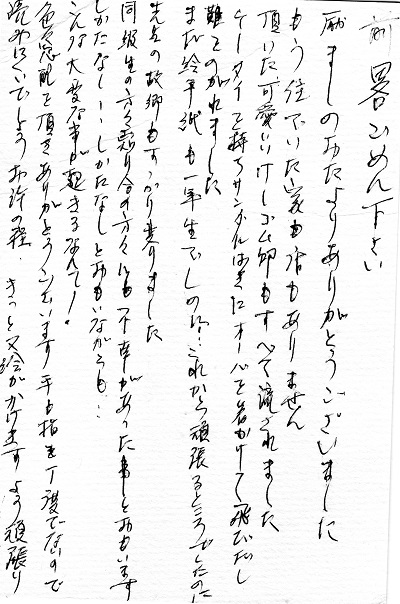 前略ごめん下さい
励ましのおたよりありがとうございました
もう住んでいた家も店もありません
頂いた可愛いけしゴム印もすべて流されました
ケータイを持ちサンダルはきにオーバを着かけて飛びだし
難をのがれました
まだ絵手紙も一年生でしたのに…これから頑張るところでしたのに
先生の故郷もすっかり変りました
同級生の方々知り合の方々にも不幸があった事と思います
しかたなし…しかたなしとおもいながらも…
こんな大変な事が起きるなんて！
色々ご心配を頂きありがとうございます 手も指も丁度でないので
読めないでしょう お許の程、 きっと又絵がかけますよう頑張り